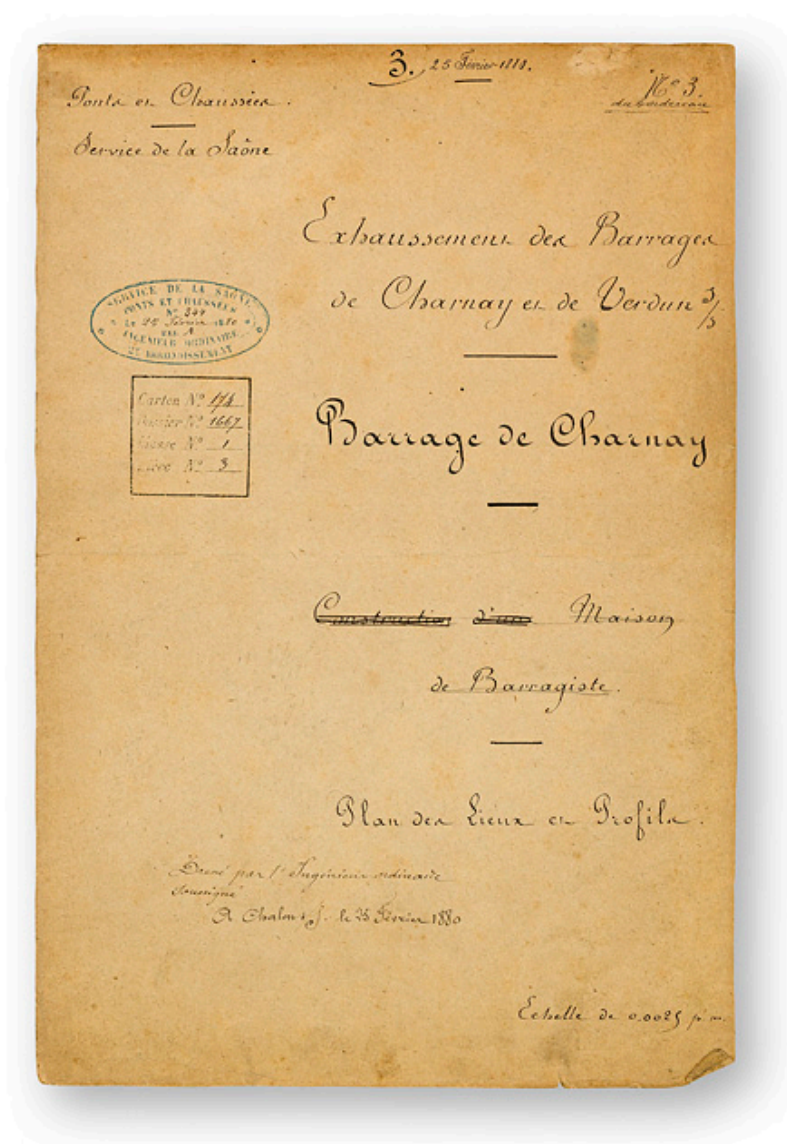 3. 25 Février 1880.
N° 3.
du bordereau
Ponts et Chaussées.
Service de la Saône
Exhaussement des Barrages
de Charnay et de Verdun s/s
SERVICE DE LA SAÔNE
PONTS ET CHAUSSÉES
N° 344
le 25 Février 1880
INGÉNIEUR ORDINAIRE
2e ARRONDISSEMENT
Carton N° 174
Dossier N° 1667
Liasse N° 1
Pièce N° 3
Barrage de Charnay
Construction d'une Maison
de Barragiste.
Plan des Lieux et Profils.
Dressé par l'Ingénieur ordinaire
soussigné
A Chalon s/S. le 25 Février 1880
Echelle de 0.0025 p. m.